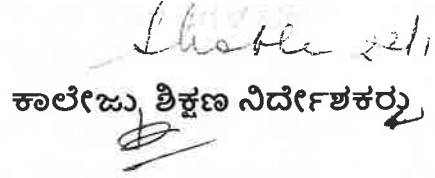 22/1
ಕಾಲೇಜು ಶಿಕ್ಷಣ ನಿರ್ದೇಶಕರು